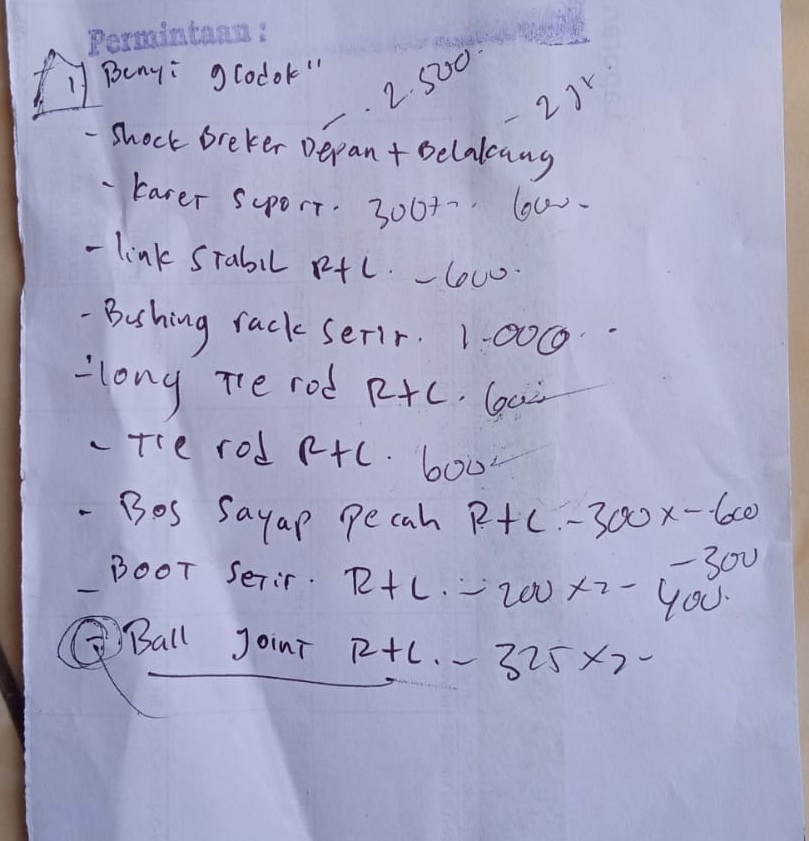 Permintaan :
1) Bunyi grodok"
- 2.500.
- 2 jt
- Shock breker Depan + Belakang
- Karet Suport. 300 600-
- link STabiL R+L. - 600.
- Bushing rack Setir. 1.000
- long Tie rod R+L. 600
- Tie rod R+L. 600
- Bos Sayap pecah R+L. - 300 x - 600
- 300
- BOOT Setir. R+L. - 200 x2 - 400.
Ball joinT R+L. - 325 x2 -